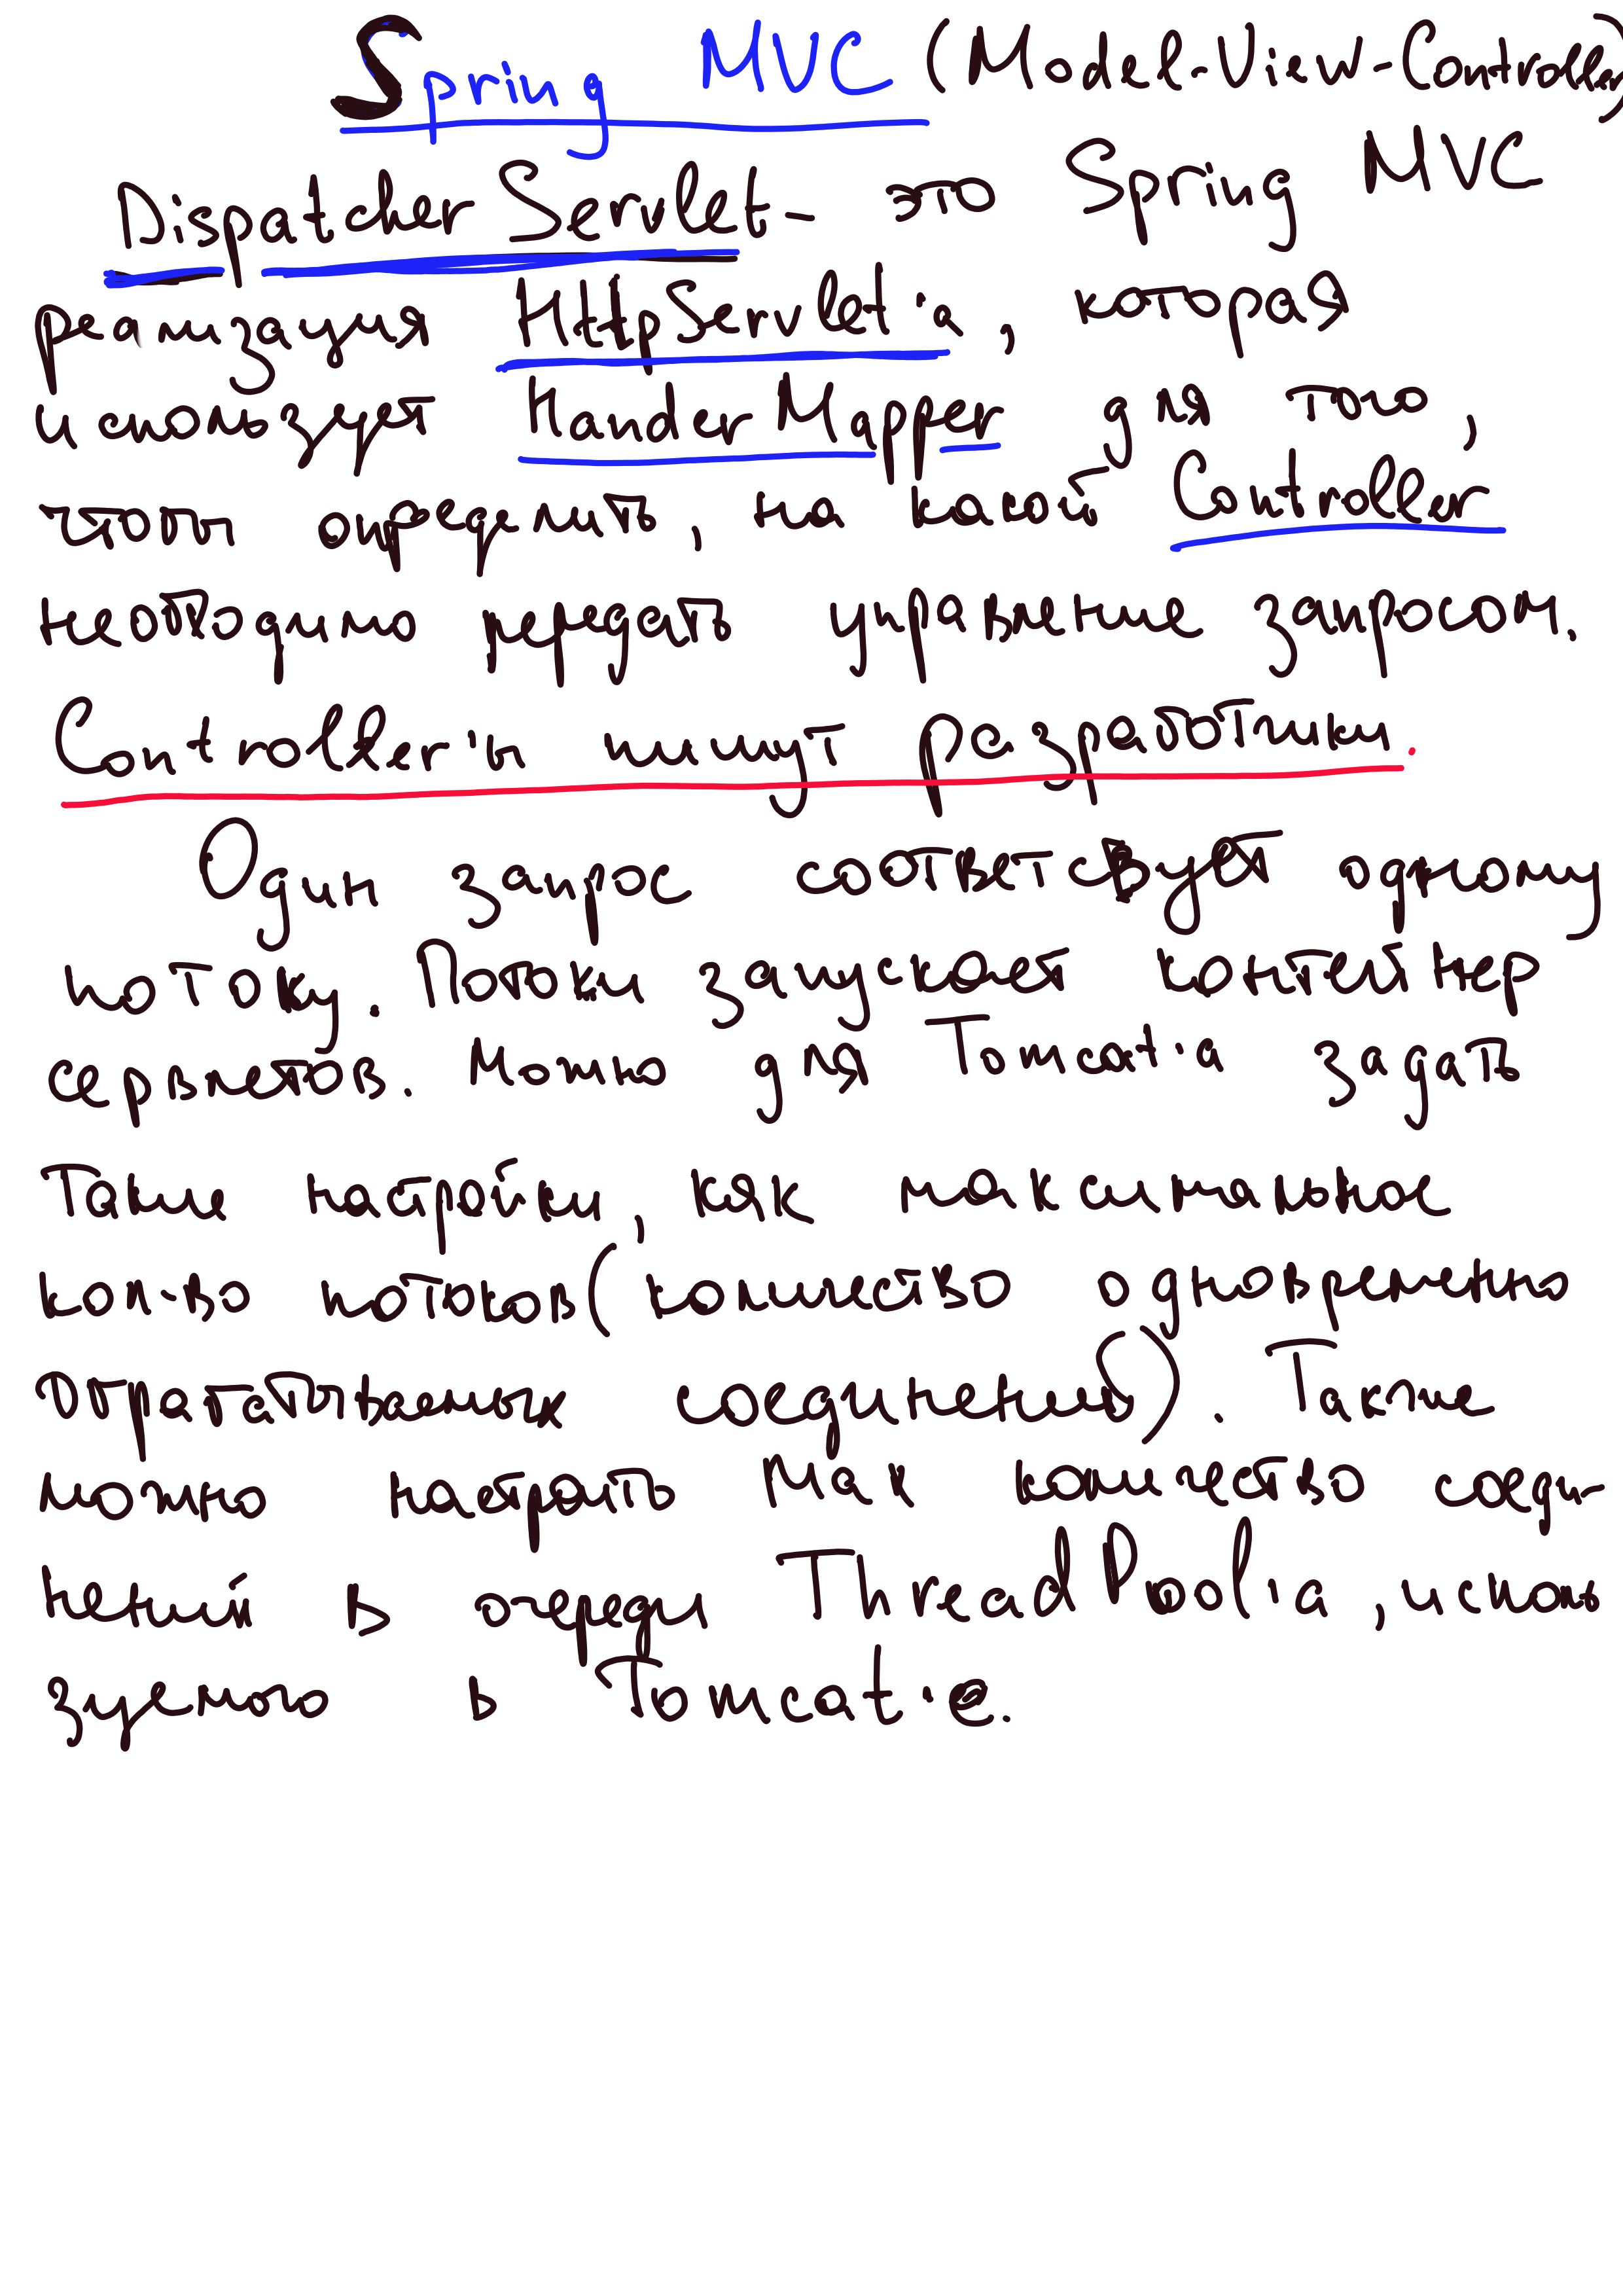 Spring MVC (Model-View-Controller)
Dispatcher Servlet - это Spring MVC
реализация HttpServlet'а, которая
использует HanderMapper для того,
чтобы определить, на какой Controller
необходимо передать управление запросом.
Controller'ы пишут разработчики.
Один запрос соответствует одному
потоку. Потоки запускает контейнер
сервлетов. Можно для Tomcat'а задать
такие настройки, как максимальное
кол-во потоков (количество одновременно
обрабатываемых соединений). Также
можно настроить мах количество соеди-
нений в очереди ThreadPool'а, исполь
зуемого в Tomcat'е.